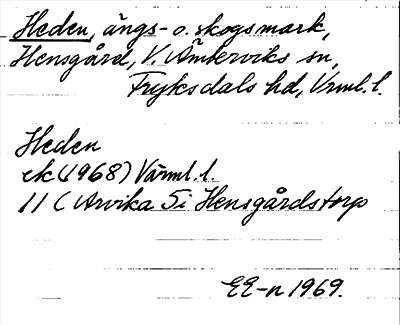 Heden, ängs- o. skogsmark,
Hensgård, V. Ämterviks sn,
Fryksdals hd, Vrml. l.
Heden
ek (1968) Värml. l.
11 C Arvika 5i Hensgårdstorp
EE-n 1969.